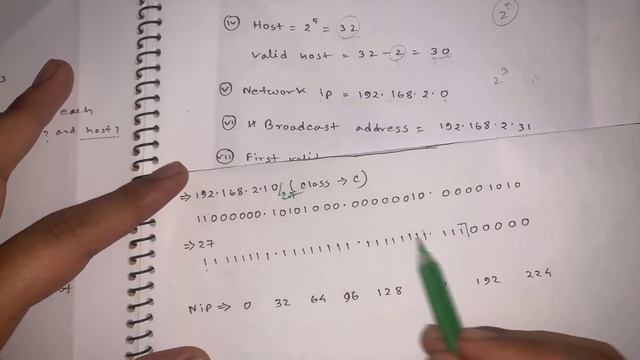 2ⁿ
iv) Host = 2⁵ = 32
Valid host = 32 - 2 = 30
2³
v) Network ip = 192.168.2.0
each
? and host?
vi) # Broadcast address = 192.168.2.31
vii) First valid
⇒ 192.168.2.10/27 (class → C)
11000000.10101000.00000010.00001010
⇒ 27
11111111.11111111.11111111.11100000
Nip ⇒ 0 32 64 96 128 192 224